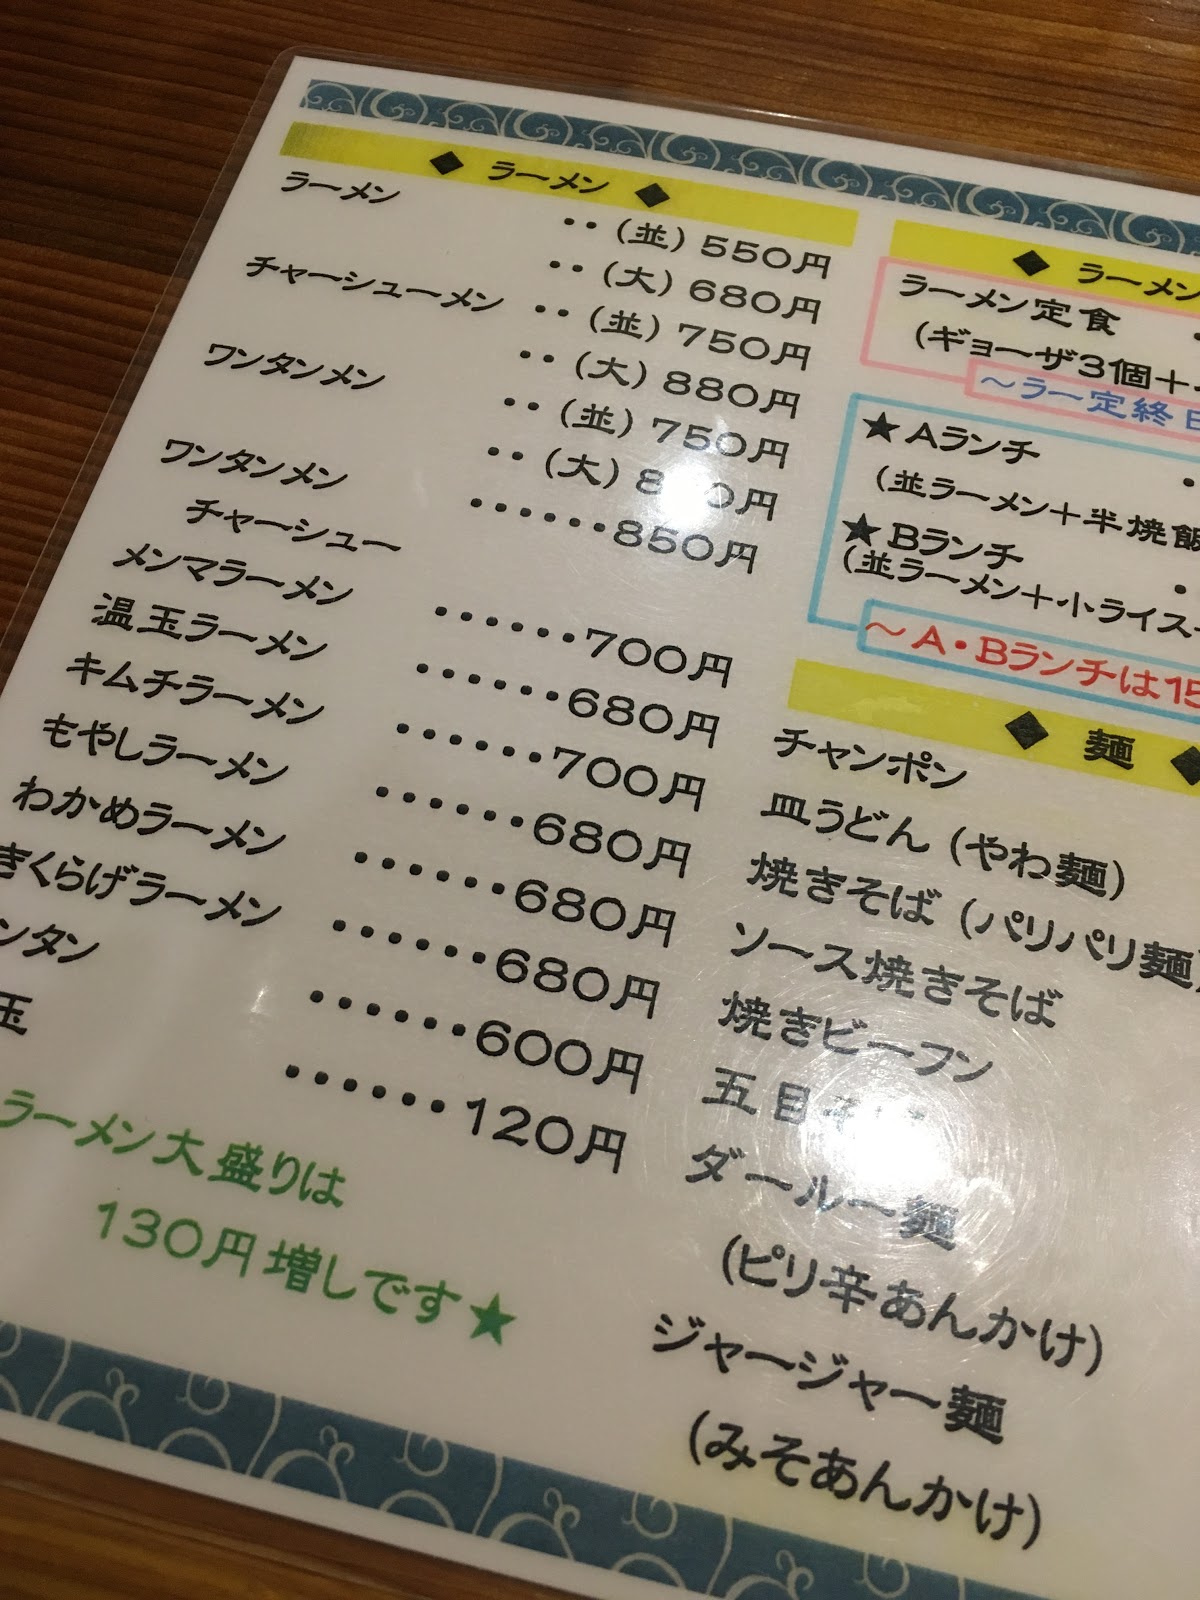 ◆ ラーメン ◆
ラーメン ‥(並) 550円
‥(大) 680円
チャーシューメン ‥(並) 750円
‥(大) 880円
ワンタンメン ‥(並) 750円
‥(大) 円
ワンタンメン
チャーシュー ‥‥‥850円
メンマラーメン ‥‥‥700円
温玉ラーメン ‥‥‥680円
キムチラーメン ‥‥‥700円
もやしラーメン ‥‥‥680円
わかめラーメン ‥‥‥680円
きくらげラーメン ‥‥‥680円
ンタン ‥‥‥600円
玉 ‥‥‥120円
ラーメン大盛りは
130円増しです★
◆ ラーメン
ラーメン定食
(ギョーザ3個+
～ラー定終日
★Aランチ
(並ラーメン+半焼飯
★Bランチ
(並ラーメン+小ライス
～A・Bランチは15
◆ 麺 ◆
チャンポン
皿うどん (やわ麺)
焼きそば (パリパリ麺)
ソース焼きそば
焼きビーフン
五目
ダールー麺
(ピリ辛あんかけ)
ジャージャー麺
(みそあんかけ)